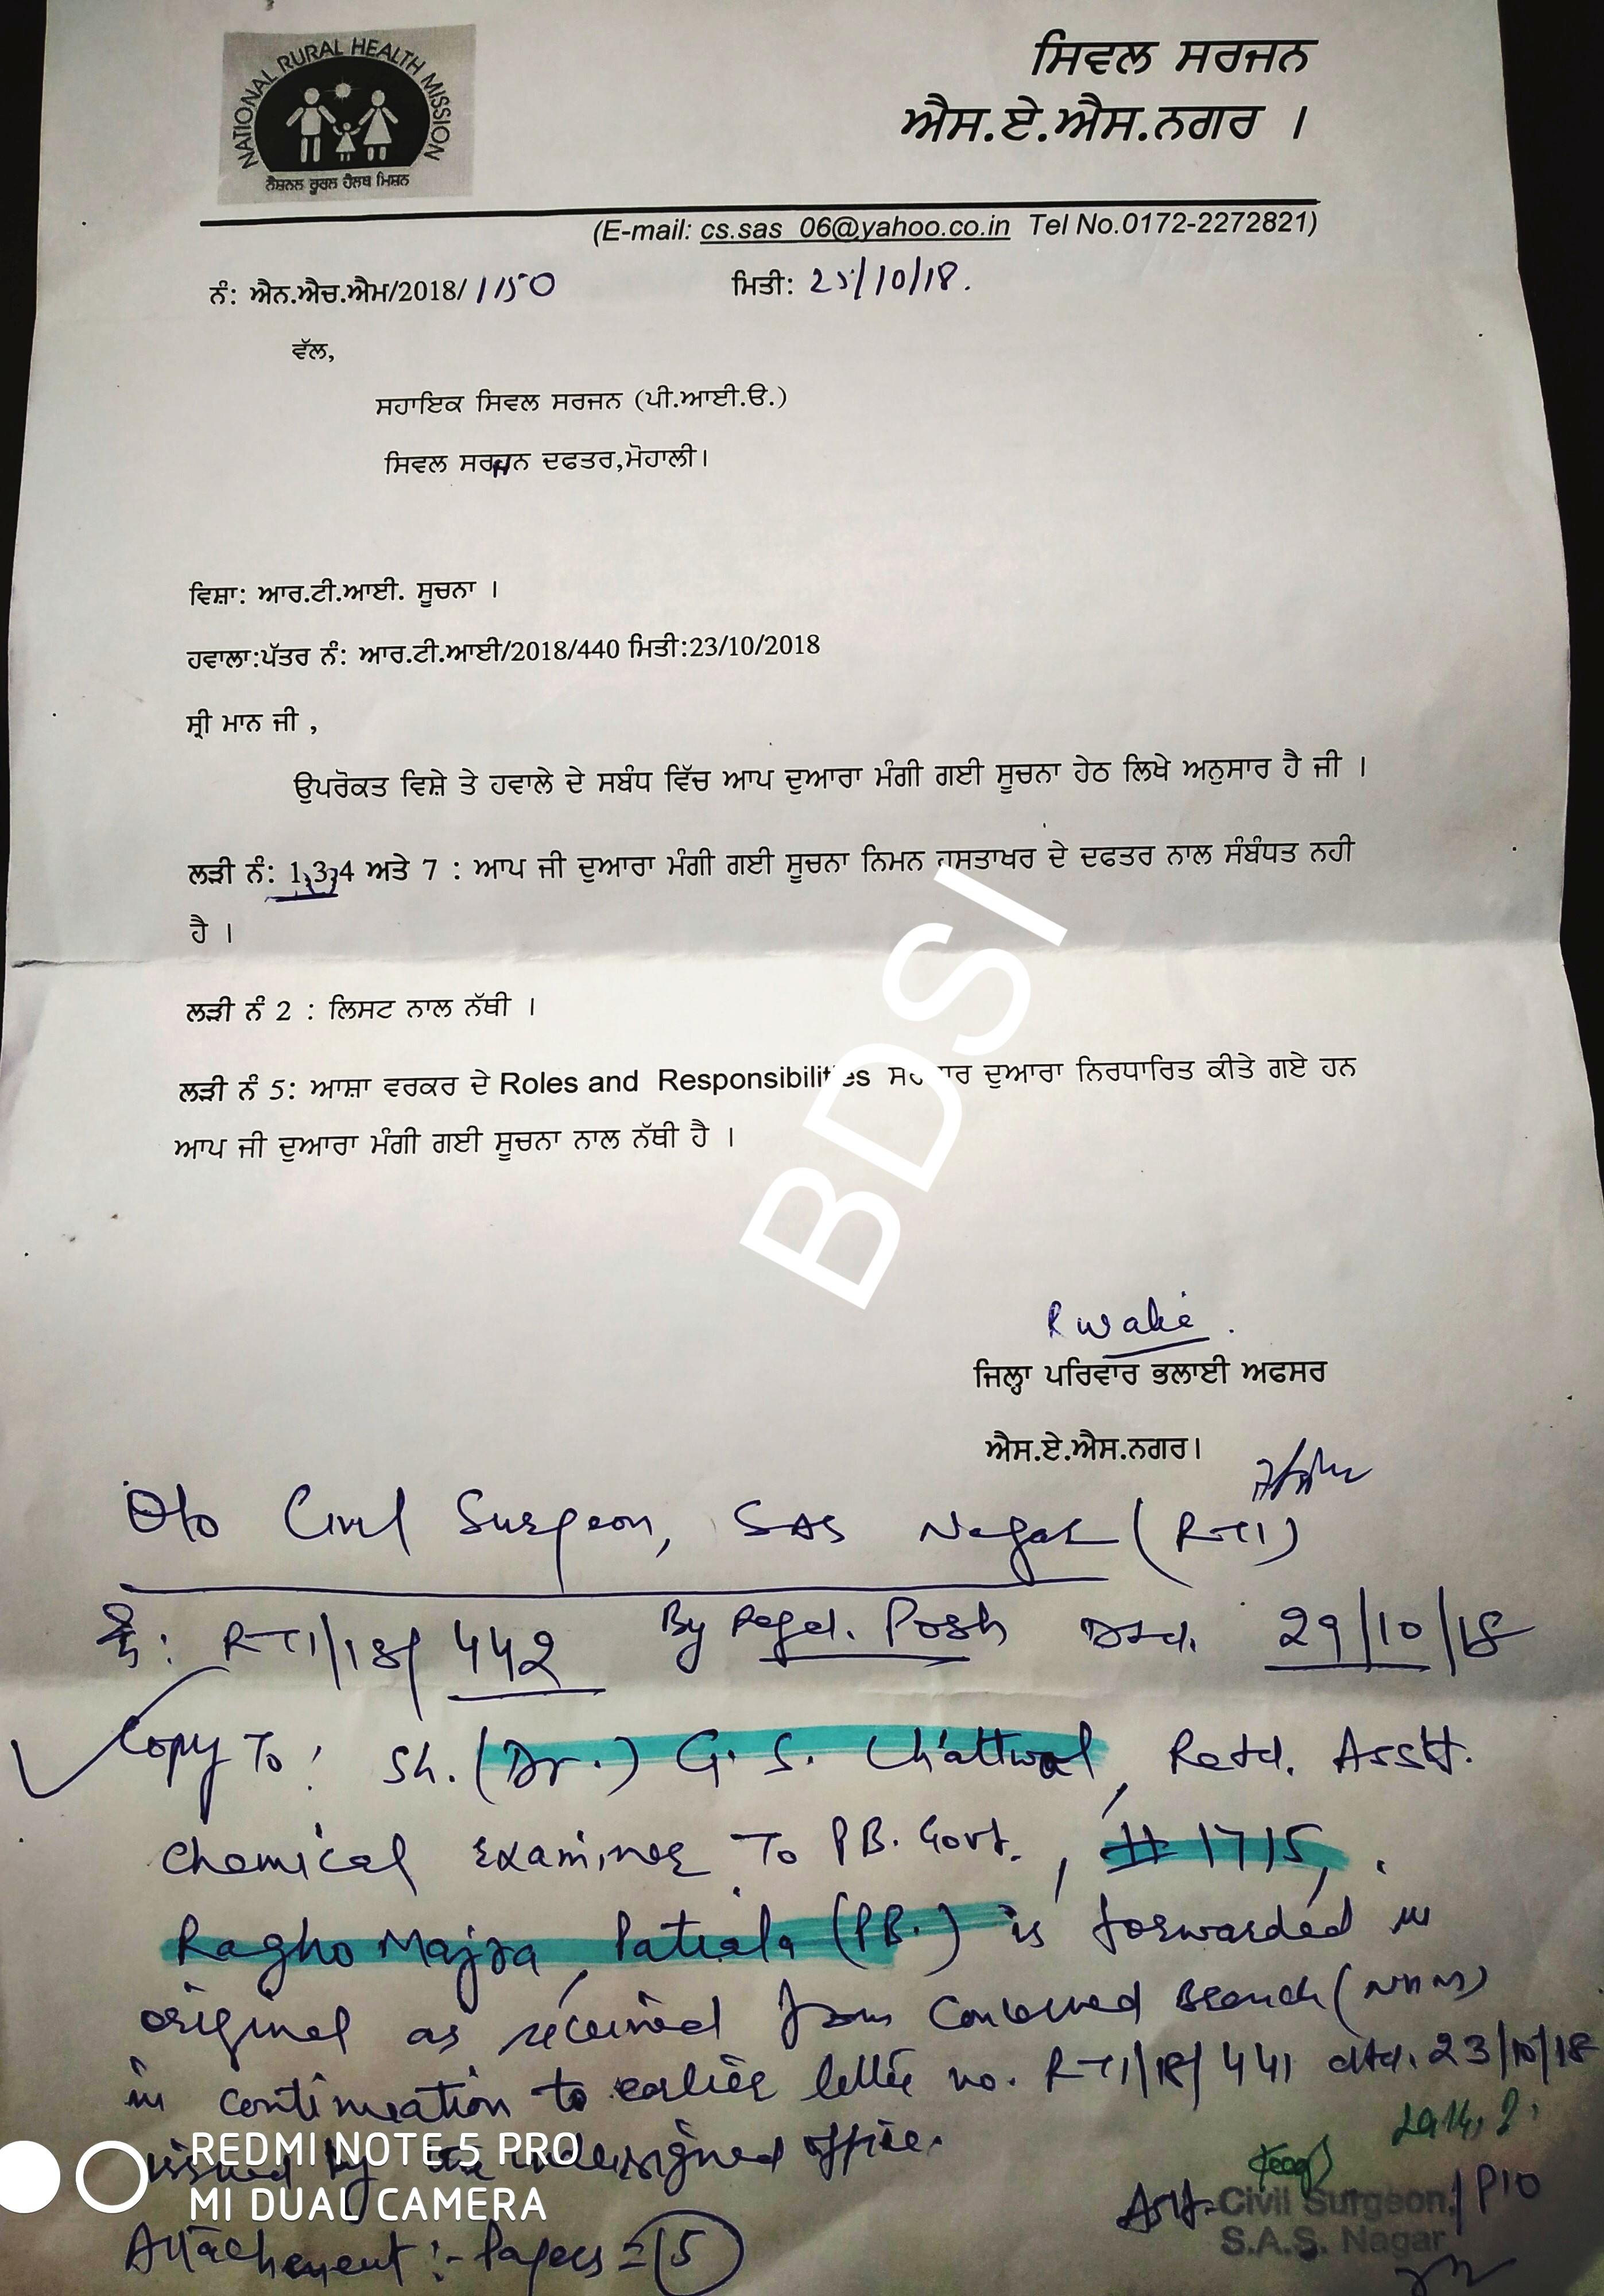 NATIONAL RURAL HEALTH MISSION
ਨੈਸ਼ਨਲ ਰੂਰਲ ਹੈਲਥ ਮਿਸ਼ਨ
ਸਿਵਲ ਸਰਜਨ
ਐਸ.ਏ.ਐਸ.ਨਗਰ ।
(E-mail: cs.sas_06@yahoo.co.in Tel No.0172-2272821)
ਨੰ: ਐਨ.ਐਚ.ਐਮ/2018/1150 ਮਿਤੀ: 25/10/18.
ਵੱਲ,
ਸਹਾਇਕ ਸਿਵਲ ਸਰਜਨ (ਪੀ.ਆਈ.ਓ.)
ਸਿਵਲ ਸਰਜਨ ਦਫਤਰ,ਮੋਹਾਲੀ।
ਵਿਸ਼ਾ: ਆਰ.ਟੀ.ਆਈ. ਸੂਚਨਾ ।
ਹਵਾਲਾ:ਪੱਤਰ ਨੰ: ਆਰ.ਟੀ.ਆਈ/2018/440 ਮਿਤੀ:23/10/2018
ਸ੍ਰੀ ਮਾਨ ਜੀ ,
ਉਪਰੋਕਤ ਵਿਸ਼ੇ ਤੇ ਹਵਾਲੇ ਦੇ ਸਬੰਧ ਵਿੱਚ ਆਪ ਦੁਆਰਾ ਮੰਗੀ ਗਈ ਸੂਚਨਾ ਹੇਠ ਲਿਖੇ ਅਨੁਸਾਰ ਹੈ ਜੀ ।
ਲੜੀ ਨੰ: 1,3,4 ਅਤੇ 7 : ਆਪ ਜੀ ਦੁਆਰਾ ਮੰਗੀ ਗਈ ਸੂਚਨਾ ਨਿਮਨ ਹਸਤਾਖਰ ਦੇ ਦਫਤਰ ਨਾਲ ਸੰਬੰਧਤ ਨਹੀ
ਹੈ ।
ਲੜੀ ਨੰ 2 : ਲਿਸਟ ਨਾਲ ਨੱਥੀ ।
ਲੜੀ ਨੰ 5: ਆਸ਼ਾ ਵਰਕਰ ਦੇ Roles and Responsibilities ਸਰਕਾਰ ਦੁਆਰਾ ਨਿਰਧਾਰਿਤ ਕੀਤੇ ਗਏ ਹਨ
ਆਪ ਜੀ ਦੁਆਰਾ ਮੰਗੀ ਗਈ ਸੂਚਨਾ ਨਾਲ ਨੱਥੀ ਹੈ ।
BDSI
ਜਿਲ੍ਹਾ ਪਰਿਵਾਰ ਭਲਾਈ ਅਫਸਰ
ਐਸ.ਏ.ਐਸ.ਨਗਰ।
O/o Civil Surgeon, SAS Nagar (RTI)
ਨੰ: RTI/18/442 By Regd. Post 29/10/18
Copy To: Sh. (Dr.) G. S. Chattwal, Retd. Asstt.
Chemical Examiner To PB. Govt., # 1715,
Ragho Majra, Patiala (PB.) is forwarded in
original as received from Concerned Branch (NHM)
in continuation to earlier letter no. RTI/18/441 dtd. 23/10/18
issued by the undersigned office.
Asstt. Civil Surgeon/PIO
S.A.S. Nagar
Attachement :- Papers = 15
REDMI NOTE 5 PRO
MI DUAL CAMERA